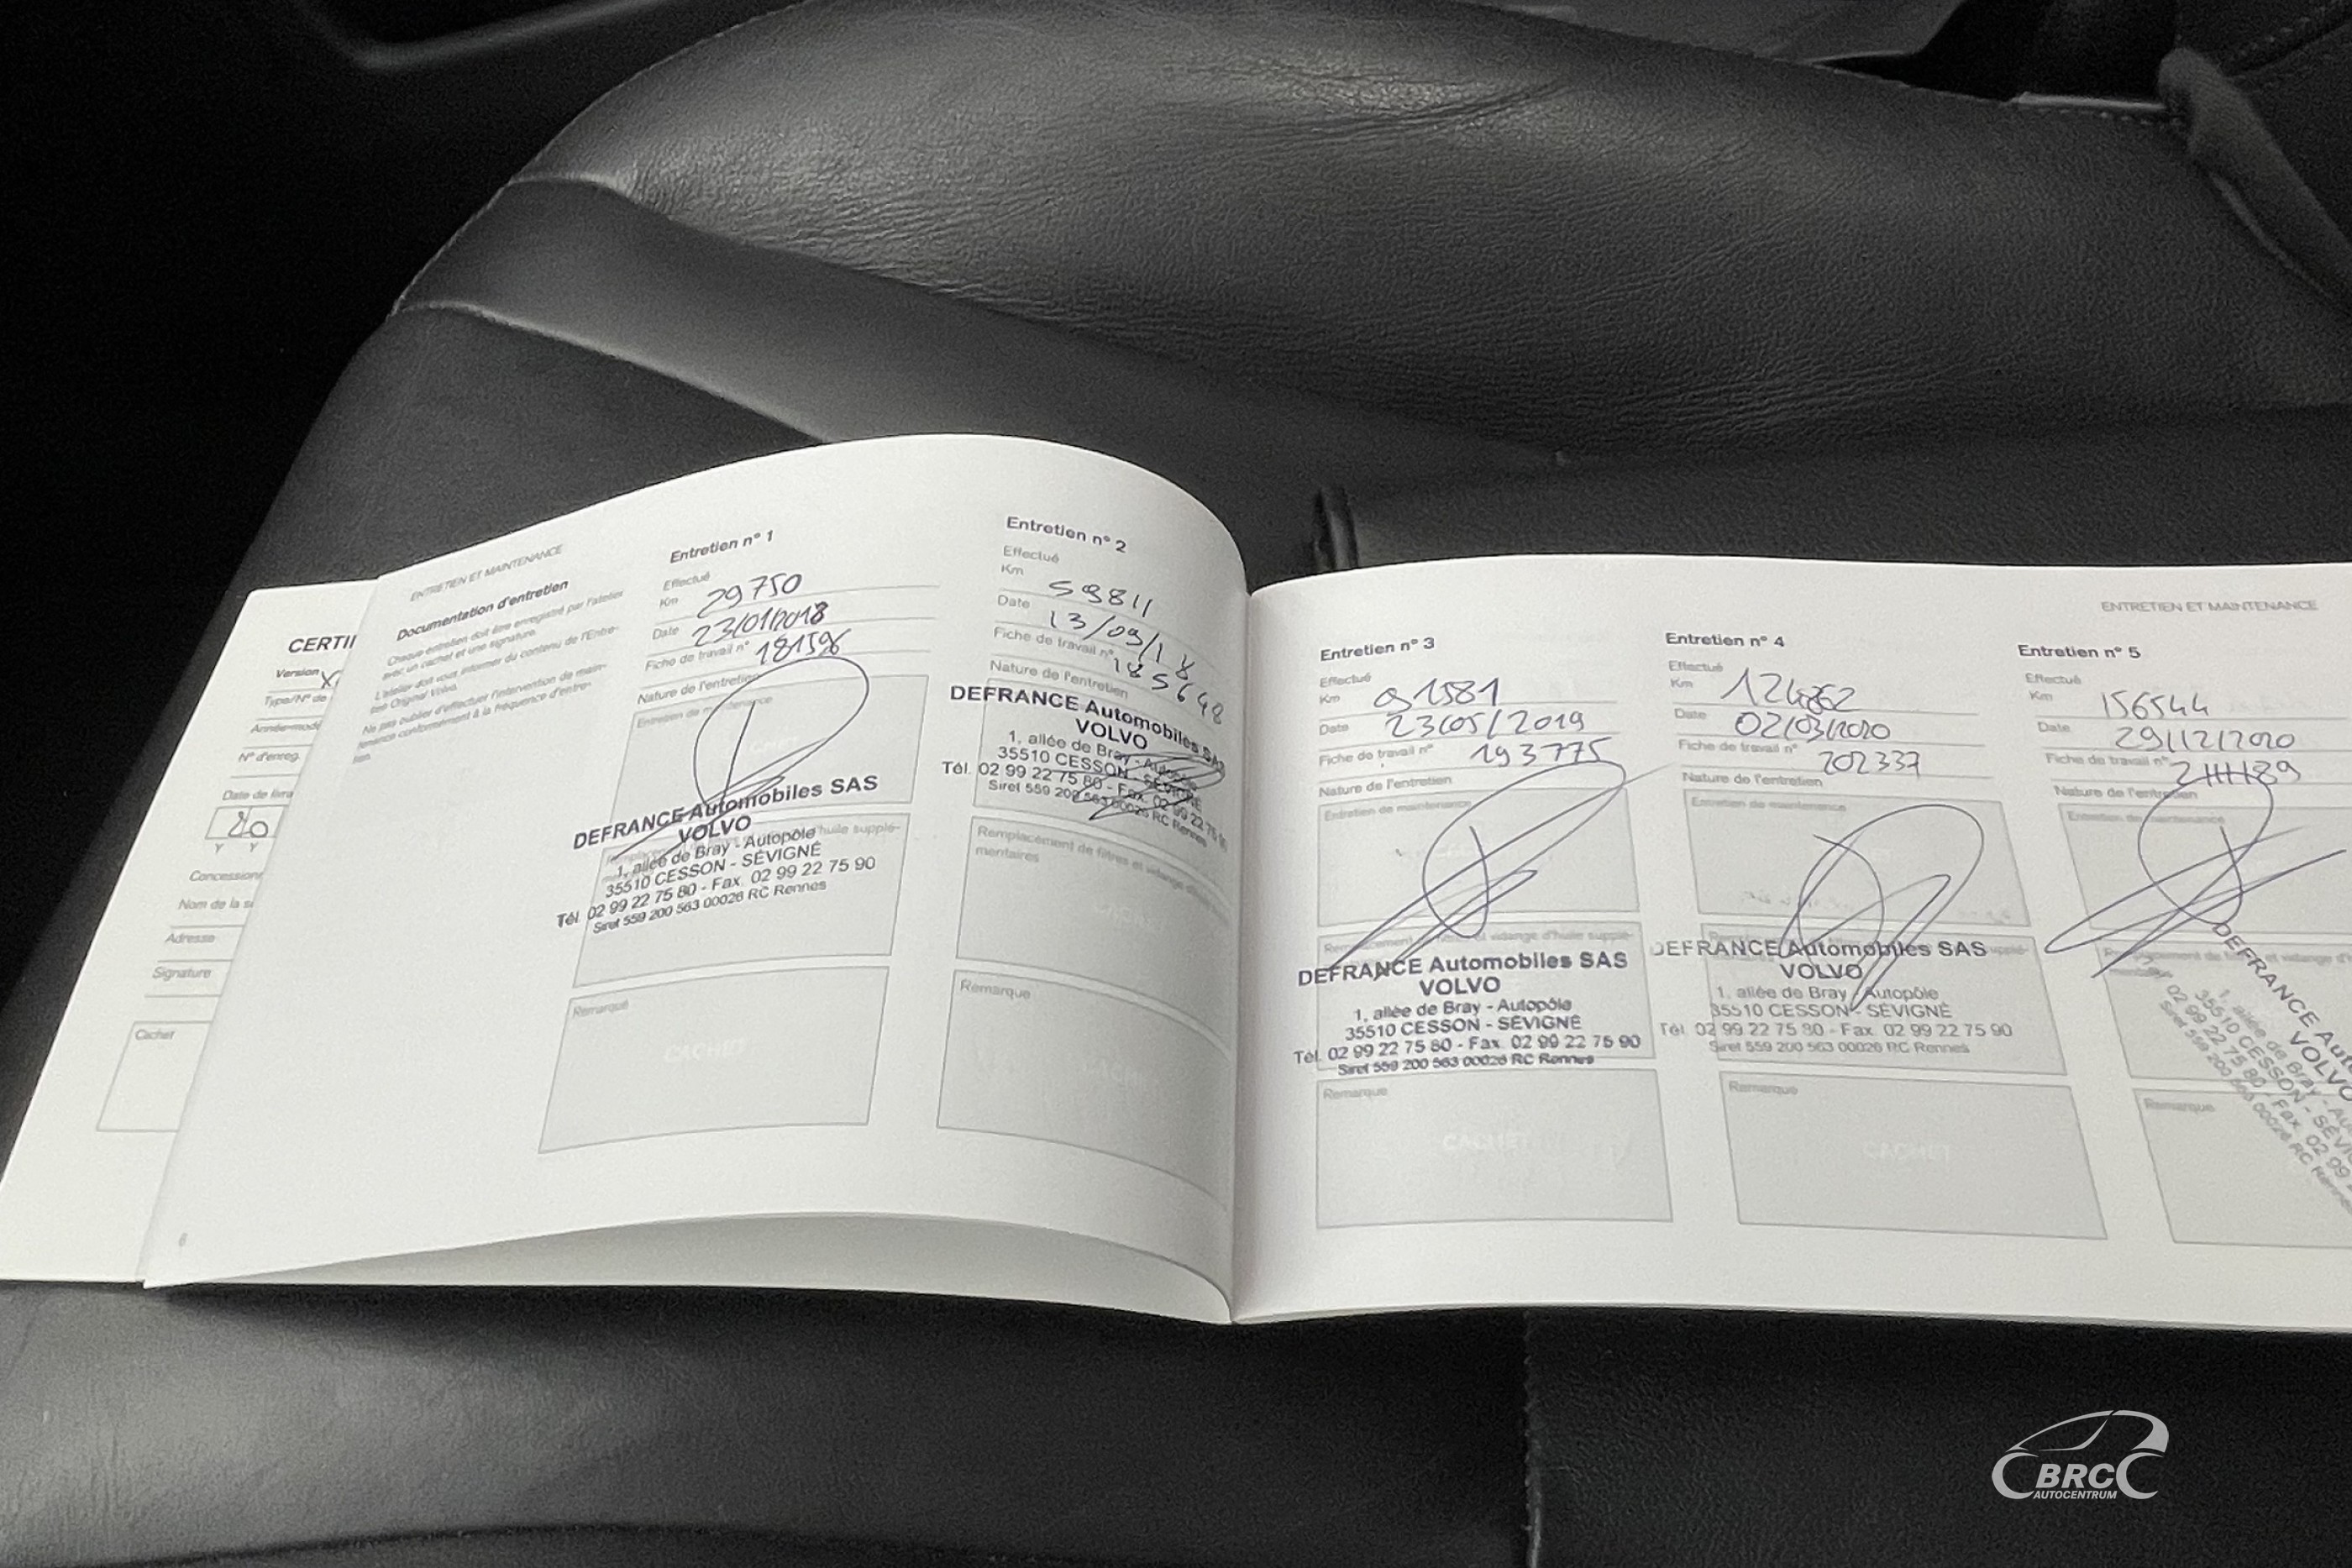 CERTI
Version
Type/N° de
Année-mod
N° d'enreg.
Date de livra
20
Y Y
Concession
Nom de la s
Adresse
Signature
Cachet
ENTRETIEN ET MAINTENANCE
Documentation d'entretien
Chaque entretien doit être enregistré par l'atelier
avec un cachet et une signature.
L'atelier doit vous informer du contenu de l'Entre-
tien Original Volvo.
Ne pas oublier d'effectuer l'intervention de main-
tenance conformément à la fréquence d'entre-
tien.
6
Entretien n° 1
Effectué
Km 29750
Date 23/01/2018
Fiche de travail n°
Nature de l'entretien
Entretien de maintenance
DEFRANCE Automobiles SAS
VOLVO
1, allée de Bray - Autopôle
35510 CESSON - SÉVIGNÉ
Tél. 02 99 22 75 80 - Fax. 02 99 22 75 90
Siret 559 200 563 00026 RC Rennes
Remarque
CACHET
Entretien n° 2
Effectué
Km 59811
Date 13/09/18
Fiche de travail n° 185648
Nature de l'entretien
DEFRANCE Automobiles SAS
VOLVO
1, allée de Bray - Autopôle
35510 CESSON - SÉVIGNÉ
Tél. 02 99 22 75 80 - Fax. 02 99 22 75 90
Siret 559 200 563 00026 RC Rennes
Remplacement de filtres et vidange d'huile
mentaires
Remarque
CACHET
ENTRETIEN ET MAINTENANCE
Entretien n° 3
Effectué
Km 91581
Date 23/05/2019
Fiche de travail n° 193775
Nature de l'entretien
Entretien de maintenance
DEFRANCE Automobiles SAS
VOLVO
1, allée de Bray - Autopôle
35510 CESSON - SÉVIGNÉ
Tél. 02 99 22 75 80 - Fax. 02 99 22 75 90
Siret 559 200 563 00026 RC Rennes
Remarque
CACHET
Entretien n° 4
Effectué
Km
Date 02/03/2020
Fiche de travail n° 202337
Nature de l'entretien
Entretien de maintenance
DEFRANCE Automobiles SAS
VOLVO
1, allée de Bray - Autopôle
35510 CESSON - SÉVIGNÉ
Tél. 02 99 22 75 80 - Fax. 02 99 22 75 90
Siret 559 200 563 00026 RC Rennes
Remarque
CACHET
Entretien n° 5
Effectué
Km 156544
Date 29/12/2020
Fiche de travail n°
Nature de l'entretien
Entretien de maintenance
DEFRANCE Auto
VOLVO
1, allée de Bray - Au
35510 CESSON - SÉVI
02 99 22 75 80 - Fax. 02 99 2
Siret 559 200 563 00026 RC Renne
Remarque
BRC
AUTOCENTRUM